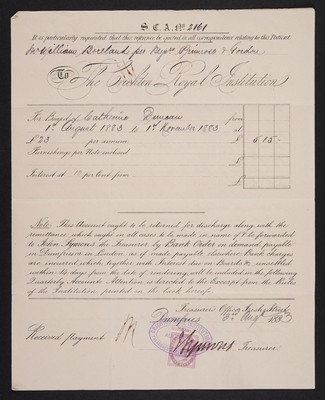 S.C.A. No 2161
It is particularly requested that this reference be quoted in all correspondence relating to this Patient
Mr William Boreland per Messrs Primrose & Gordon
To The Crichton Royal Institution
For Board of Catherine Duncan from
1st August 1883 to 1st November 1883 at
£23 per annum £ 5 15 -
Reincharges per Note enclosed £
Interest at 10 per Cent from £
£
Note: This Account ought to be returned for discharge along with the
remittance which ought in all cases to be made in name of & be forwarded
to John Symons the Treasurer by Bank Order on demand, payable
in Dumfries or London as if made payable elsewhere, Bank charges
are incurred which together with Interest due on Boards &c unsettled
within 14 days from the date of rendering will be included in the following
Quarterly Account. Attention is directed to the Excerpt from the Rules
of the Institution printed on the back hereof.
Treasurer's Office, Irish Street
Dumfries 3rd Augt 1883
Received Payment
J Symons Treasurer